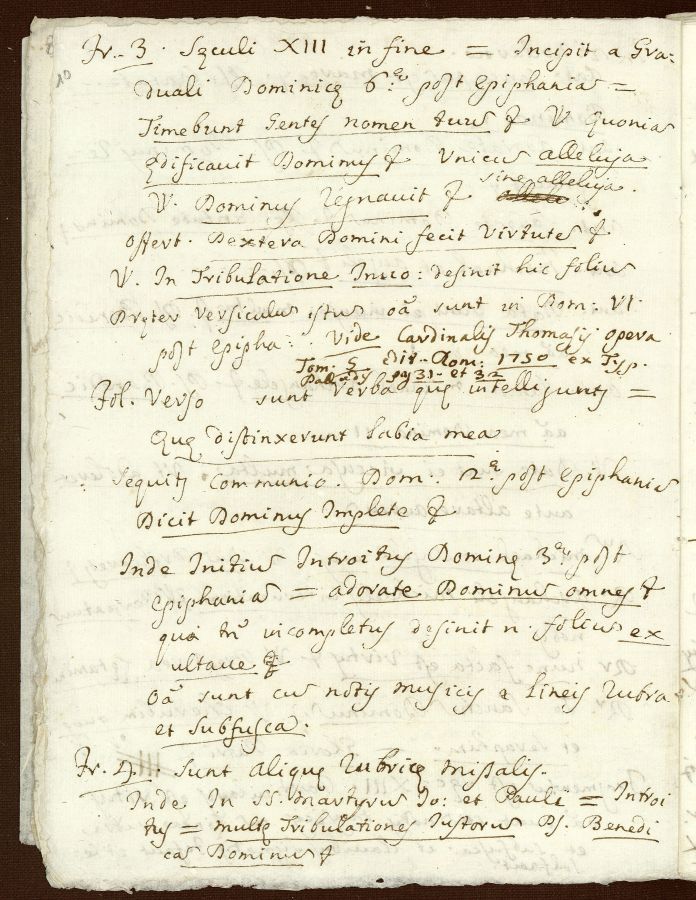 10
Fr. 3. Sęculi XIII in fine = Incipit a Gra=
duali Dominicę 6.ę post Epiphania =
Timebunt Gentes nomen tuus & V. Quonia
ędificauit Dominus & Unicus alleluja
V. Dominus regnauit & sine alleluja.
offert. Dextera Domini fecit Virtute &
V. In Tribulatione Inuco: desinit hic folius
Pręter versiculus istus oa sunt in Dom: VI.
post Epipha: Vide Cardinalis Thomasij opera
Tom: 5 edit. Rom: 1750 ex Typ.
Palladis pag 31. et 32
Fol. Verso sunt Verba quę intelliguntj =
Quę distinxerunt Labia mea
Sequitj Communio. Dom: 2.ę post Epiphania
Dicit Dominus Implete &
Inde Initiu Introitus Dominę 3.ę post
Epiphania = adorate Dominus omnes &
qua tn uicompletus desinit n. folius ex
ultaue &
oa sunt cus notis musicis a Lineis rubra
et subfusca.
Fr. 4. Sunt aliquę rubricę missalis.
Inde In SS. Martyrus Jo: et Pauli = Introi
tus = multę Tribulationes Justorus Ps. Benedi
ca Dominus &